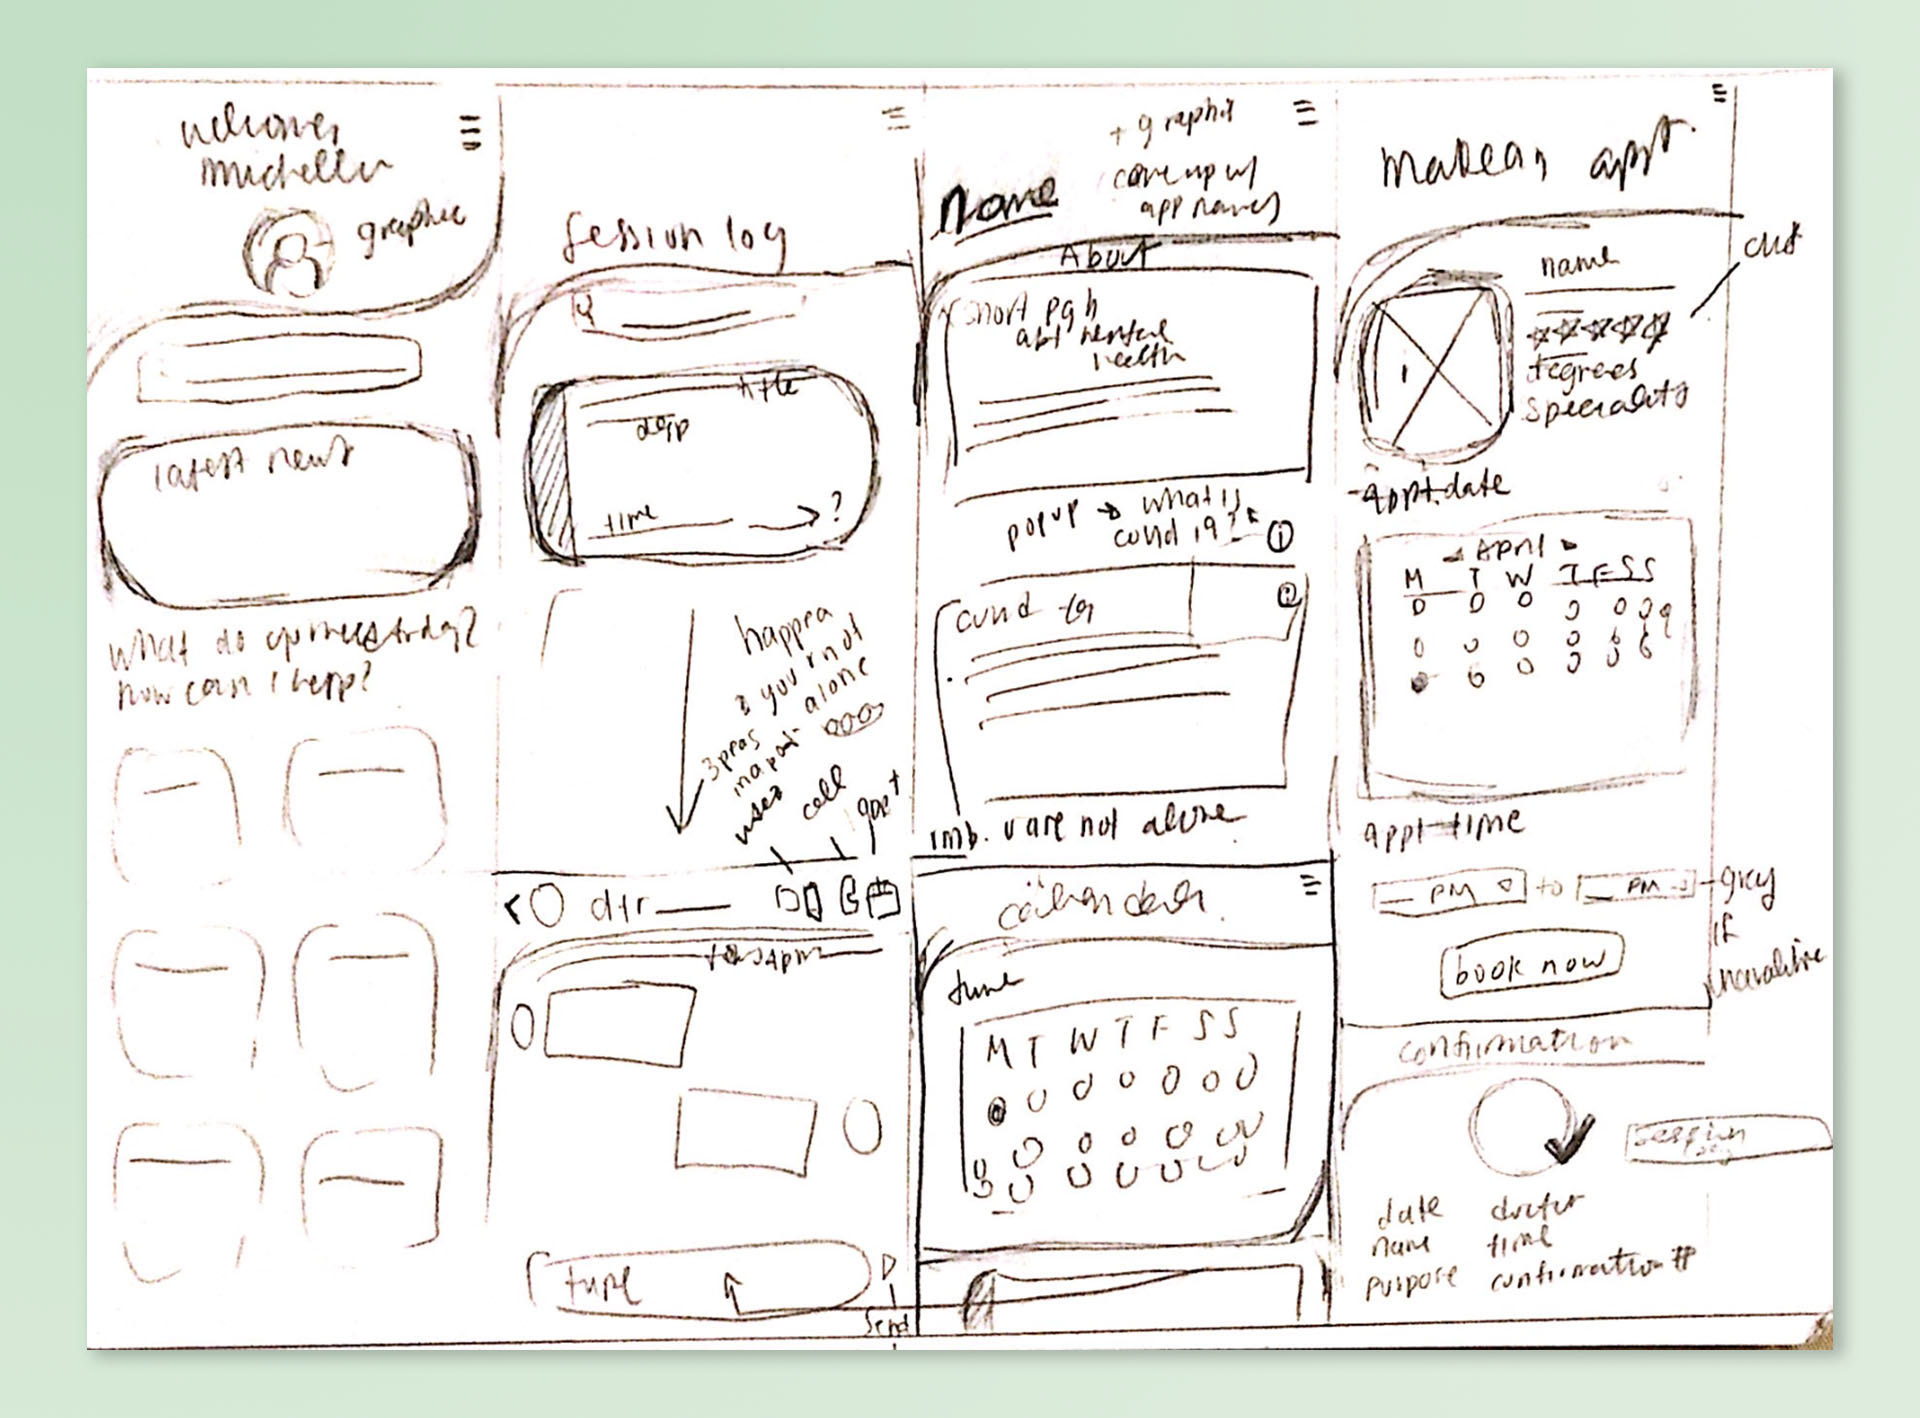 welcome,
michelle
graphic
latest news
What do you need today?
how can I help?
Session log
title
desp
time ?
you r not
alone
call
appt
dtr
type
send
+ graphic
come up w/
app names
Name
About
short pgh
abt mental
health
popup → what is
covid 19? i
covid 19 i
u are not alone
calendar
June
M T W T F S S
make an appt.
name
degrees
speciality
appt. date
◄ APRIL ►
M T W T F S S
appt time
PM to PM
grey
if
unavailable
book now
confirmation
session
log
date doctor
name time
purpose confirmation #